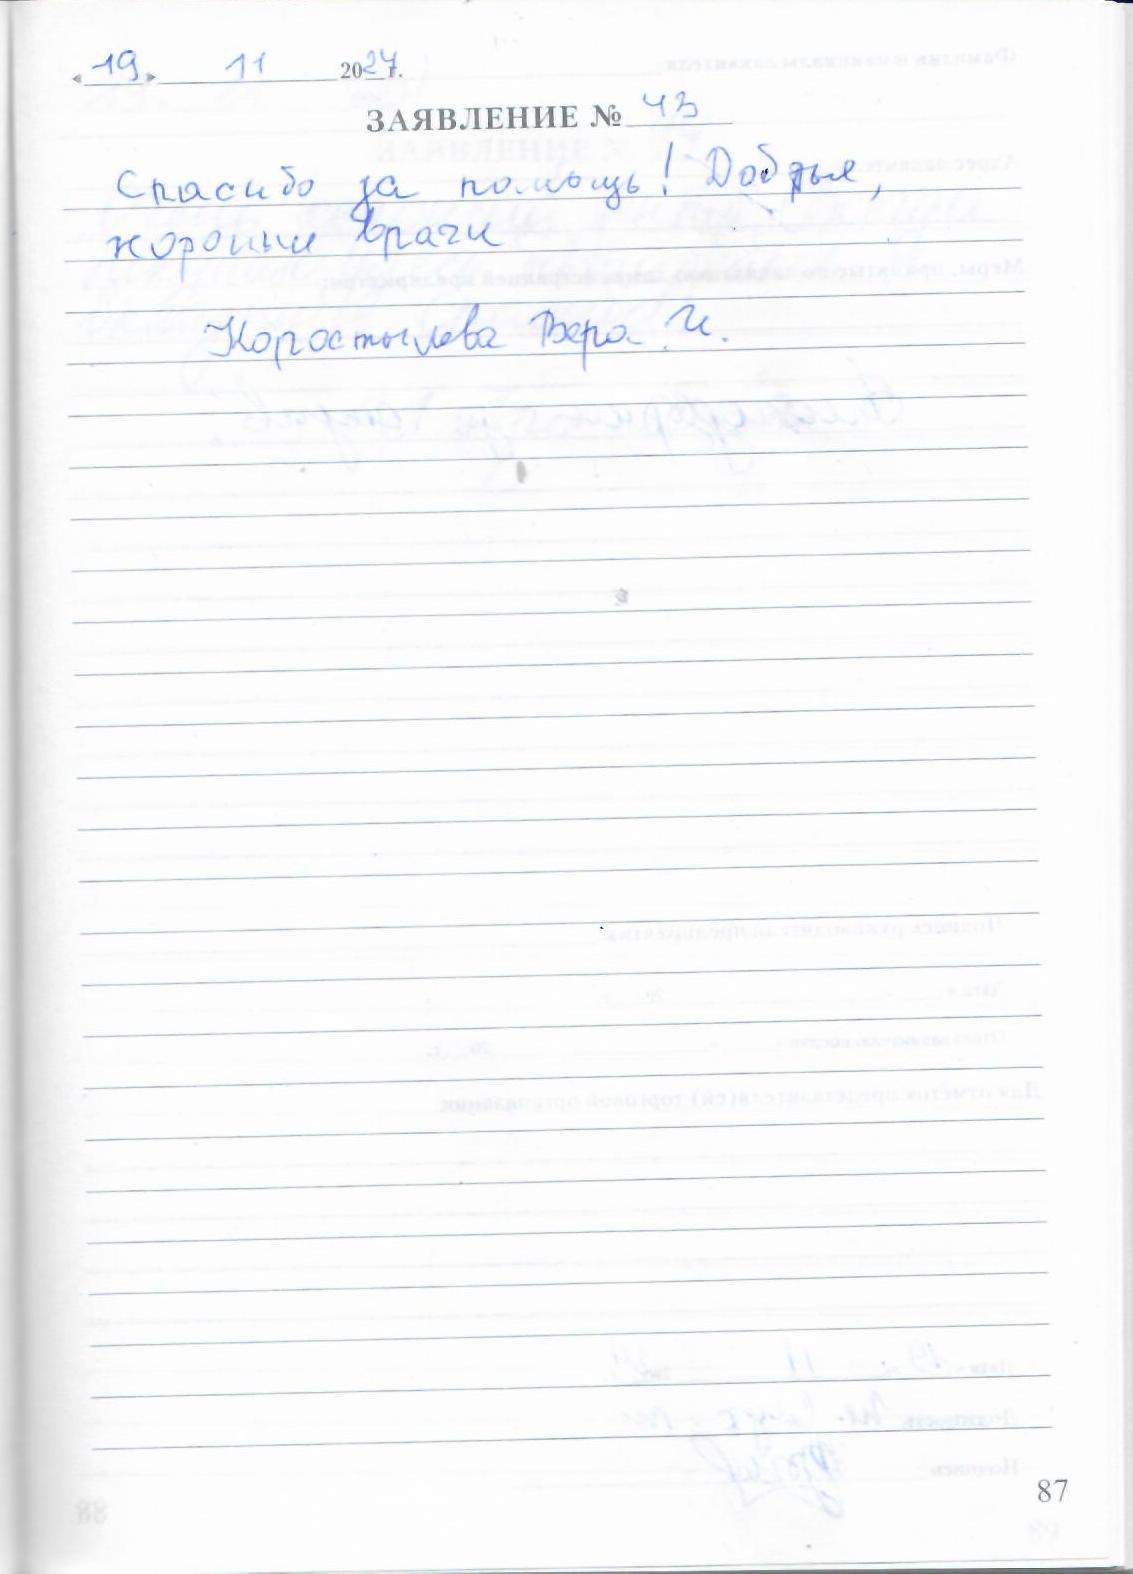 « 19 » 11 2024 г.
ЗАЯВЛЕНИЕ № 43
Спасибо за помощь! Добрые,
хорошие врачи
Коростылева Вера И.
87